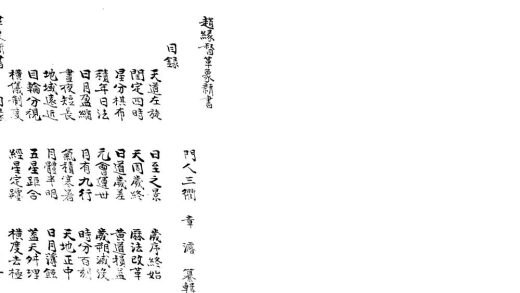 趙緣督革象新書
門人三衢 章濬 纂輯
目録
天道左旋 日至之景 歲序終始
閏定四時 天周歲終 曆法改革
星分棋布 日道歲差 黃道損益
積年日法 元會運世 歲朔減沒
日月盈縮 月有九行 時分百刻
晝夜短長 氣積寒暑 天地正中
地域遠近 月體半明 日月薄蝕
目輪分視 五星距合 蓋天舛理
橫儀制度 經星定躔 橫度去極